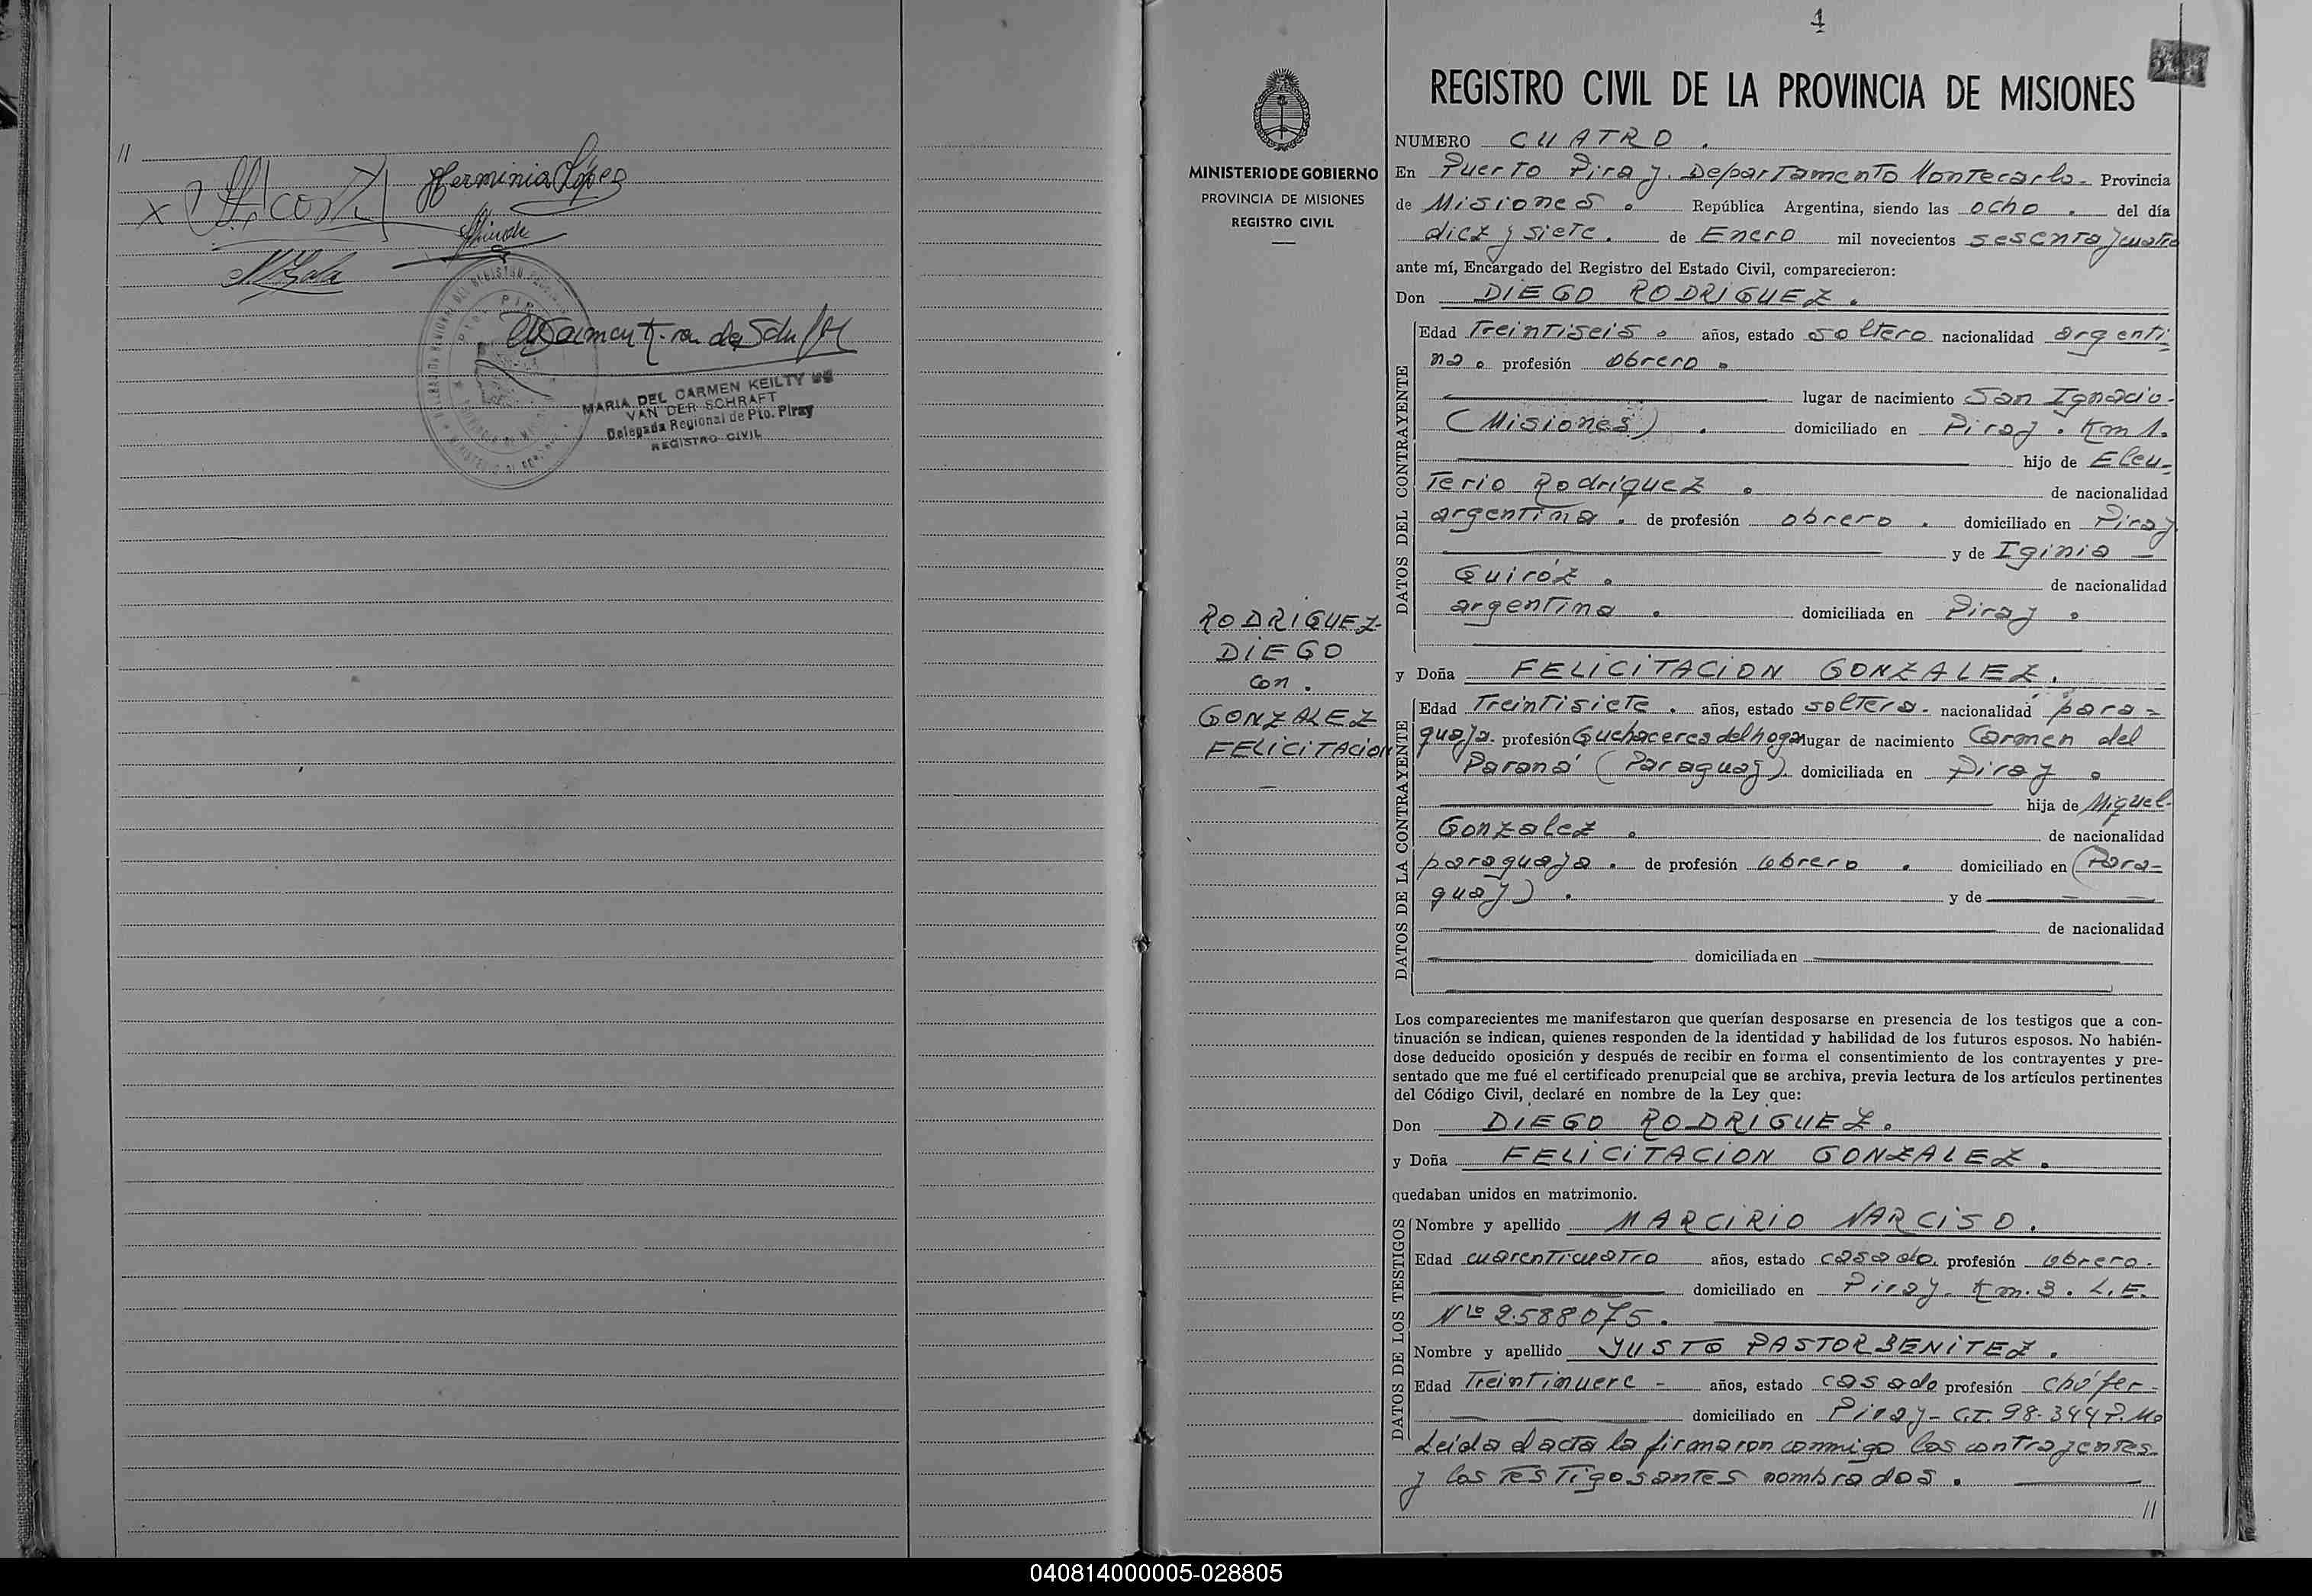 //
Herminia López
MARIA DEL CARMEN KEILTY DE
VAN DER SCHRAFT
Delegada Regional de Pto. Piray
REGISTRO CIVIL
4
REGISTRO CIVIL DE LA PROVINCIA DE MISIONES
MINISTERIO DE GOBIERNO
PROVINCIA DE MISIONES
REGISTRO CIVIL
RODRIGUEZ-
DIEGO
con.
GONZALEZ
FELICITACION
NUMERO CUATRO.
En Puerto Piray. Departamento Montecarlo- Provincia
de Misiones. República Argentina, siendo las ocho. del día
diez y siete. de Enero mil novecientos sesenta y cuatro
ante mí, Encargado del Registro del Estado Civil, comparecieron:
Don DIEGO RODRIGUEZ.
DATOS DEL CONTRAYENTE
Edad Treintiseis. años, estado soltero nacionalidad argenti
na. profesión obrero.
lugar de nacimiento San Ignacio-
(Misiones). domiciliado en Piray. Km 1.
hijo de Eleu-
terio Rodriguez. de nacionalidad
argentina. de profesión obrero. domiciliado en Piray
y de Iginia -
Quiróz. de nacionalidad
argentina. domiciliada en Piray.
y Doña FELICITACION GONZALEZ.
DATOS DE LA CONTRAYENTE
Edad Treintisiete. años, estado soltera- nacionalidad para-
guaya. profesión Quehaceres del hogar lugar de nacimiento Carmen del
Paraná (Paraguay). domiciliada en Piray.
hija de Miguel-
Gonzalez. de nacionalidad
paraguaya. de profesión obrero. domiciliado en (Para-
guay). y de
de nacionalidad
domiciliada en
Los comparecientes me manifestaron que querían desposarse en presencia de los testigos que a con-
tinuación se indican, quienes responden de la identidad y habilidad de los futuros esposos. No habién-
dose deducido oposición y después de recibir en forma el consentimiento de los contrayentes y pre-
sentado que me fué el certificado prenupcial que se archiva, previa lectura de los artículos pertinentes
del Código Civil, declaré en nombre de la Ley que:
Don DIEGO RODRIGUEZ.
y Doña FELICITACION GONZALEZ.
quedaban unidos en matrimonio.
DATOS DE LOS TESTIGOS
Nombre y apellido MARCIRIO NARCISO.
Edad cuarenticuatro años, estado casado. profesión obrero.
domiciliado en Piray- Km. 3. L.E.
Nº 2588075.
Nombre y apellido JUSTO PASTOR BENITEZ.
Edad Treintinueve - años, estado casado profesión chófer-
domiciliado en Piray- C.I. 98.344 P.Mo
Leida el acta la firmaron conmigo los contrayentes
y los testigos antes nombrados.
//
040814000005-028805